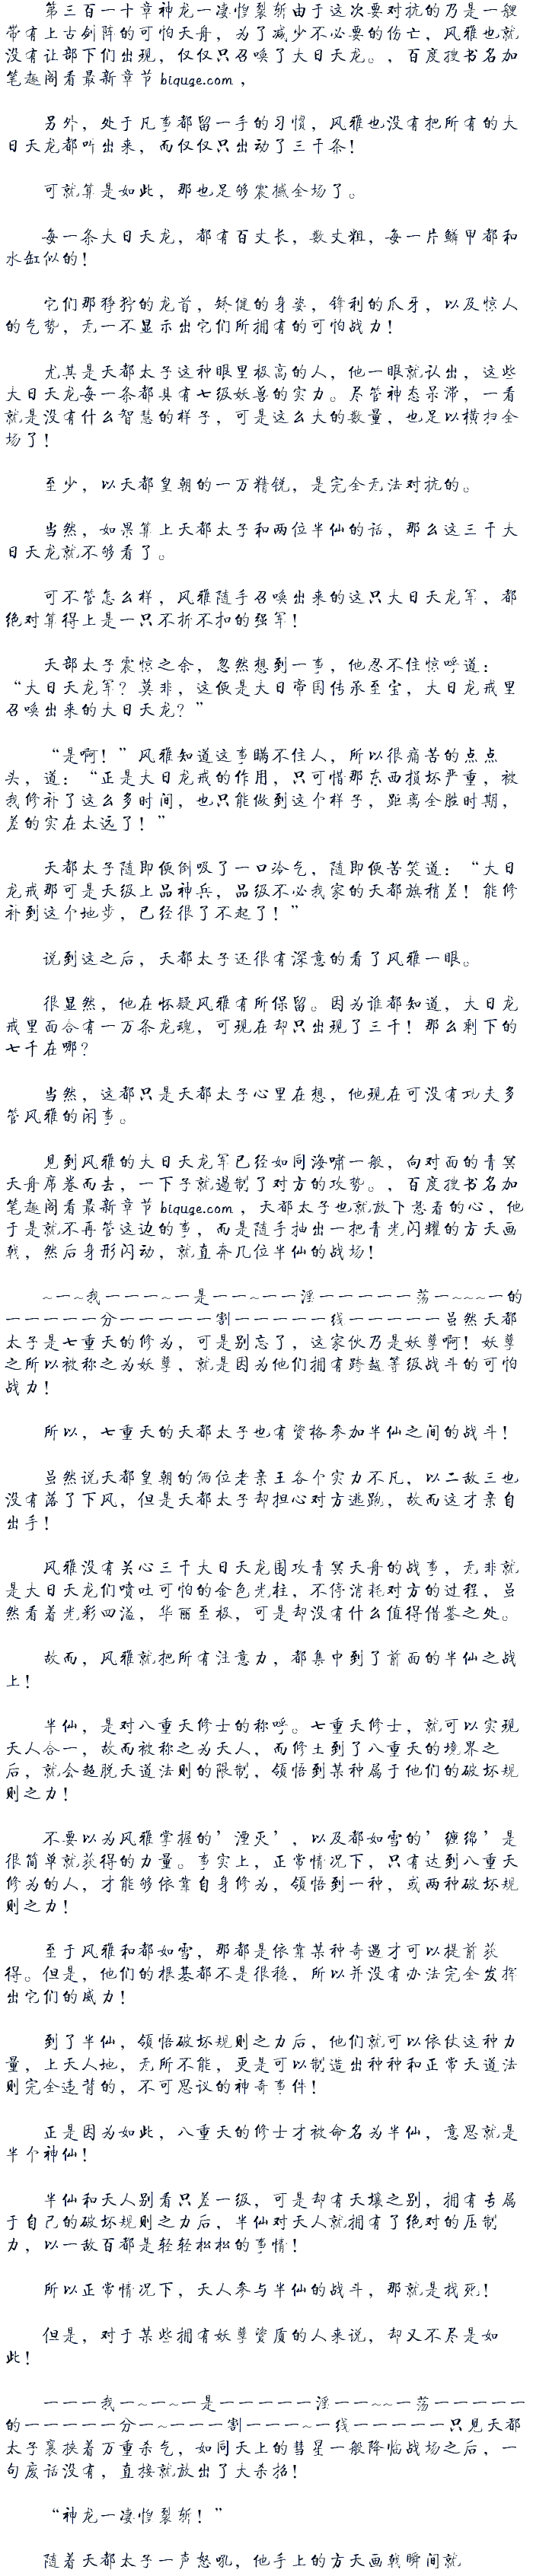 第三百一十章神龙一凄惶裂斩由于这次要对抗的乃是一艘
带有上古剑阵的可怕天舟，为了减少不必要的伤亡，风雅也就
没有让部下们出现，仅仅只召唤了大日天龙。，百度搜书名加
笔趣阁看最新章节biquge.com，
另外，处于凡事都留一手的习惯，风雅也没有把所有的大
日天龙都听出来，而仅仅只出动了三千条！
可就算是如此，那也足够震撼全场了。
每一条大日天龙，都有百丈长，数丈粗，每一片鳞甲都和
水缸似的！
它们那狰狞的龙首，矫健的身姿，锋利的爪牙，以及惊人
的气势，无一不显示出它们所拥有的可怕战力！
尤其是天都太子这种眼里极高的人，他一眼就认出，这些
大日天龙每一条都具有七级妖兽的实力。尽管神态呆滞，一看
就是没有什么智慧的样子，可是这么大的数量，也足以横扫全
场了！
至少，以天都皇朝的一万精锐，是完全无法对抗的。
当然，如果算上天都太子和两位半仙的话，那么这三千大
日天龙就不够看了。
可不管怎么样，风雅随手召唤出来的这只大日天龙军，都
绝对算得上是一只不折不扣的强军！
天部太子震惊之余，忽然想到一事，他忍不住惊呼道：
“大日天龙军？莫非，这便是大日帝国传承至宝，大日龙戒里
召唤出来的大日天龙？”
“是啊！”风雅知道这事瞒不住人，所以很痛苦的点点
头，道：“正是大日龙戒的作用，只可惜那东西损坏严重，被
我修补了这么多时间，也只能做到这个样子，距离全胜时期，
差的实在太远了！”
天都太子随即便倒吸了一口冷气，随即便苦笑道：“大日
龙戒那可是天级上品神兵，品级不必我家的天都旗稍差！能修
补到这个地步，已经很了不起了！”
说到这之后，天都太子还很有深意的看了风雅一眼。
很显然，他在怀疑风雅有所保留。因为谁都知道，大日龙
戒里面合有一万条龙魂，可现在却只出现了三千！那么剩下的
七千在哪？
当然，这都只是天都太子心里在想，他现在可没有功夫多
管风雅的闲事。
见到风雅的大日天龙军已经如同海啸一般，向对面的青冥
天舟席卷而去，一下子就遏制了对方的攻势。，百度搜书名加
笔趣阁看最新章节biquge.com，天都太子也就放下悬着的心，他
于是就不再管这边的事，而是随手抽出一把青光闪耀的方天画
戟，然后身形闪动，就直奔几位半仙的战场！
~一~我一一一~一是一一~一一淫一一一一一荡一~~~一的
一一一一一分一一一一一割一一一一一线一一一一一虽然天都
太子是七重天的修为，可是别忘了，这家伙乃是妖孽啊！妖孽
之所以被称之为妖孽，就是因为他们拥有跨越等级战斗的可怕
战力！
所以，七重天的天都太子也有资格参加半仙之间的战斗！
虽然说天都皇朝的俩位老亲王各个实力不凡，以二敌三也
没有落了下风，但是天都太子却担心对方逃跑，故而这才亲自
出手！
风雅没有关心三千大日天龙围攻青冥天舟的战事，无非就
是大日天龙们喷吐可怕的金色光柱，不停消耗对方的过程，虽
然看着光彩四溢，华丽至极，可是却没有什么值得借鉴之处。
故而，风雅就把所有注意力，都集中到了前面的半仙之战
上！
半仙，是对八重天修士的称呼。七重天修士，就可以实现
天人合一，故而被称之为天人，而修土到了八重天的境界之
后，就会超脱天道法则的限制，领悟到某种属于他们的破坏规
则之力！
不要以为风雅掌握的'湮灭'，以及都如雪的'缠绵'是
很简单就获得的力量。事实上，正常情况下，只有达到八重天
修为的人，才能够依靠自身修为，领悟到一种，或两种破坏规
则之力！
至于风雅和都如雪，那都是依靠某种奇遇才可以提前获
得。但是，他们的根基都不是很稳，所以并没有办法完全发挥
出它们的威力！
到了半仙，领悟破坏规则之力后，他们就可以依仗这种力
量，上天人地，无所不能，更是可以制造出种种和正常天道法
则完全违背的，不可思议的神奇事件！
正是因为如此，八重天的修士才被命名为半仙，意思就是
半个神仙！
半仙和天人别看只差一级，可是却有天壤之别，拥有专属
于自己的破坏规则之力后，半仙对天人就拥有了绝对的压制
力，以一敌百都是轻轻松松的事情！
所以正常情况下，天人参与半仙的战斗，那就是找死！
但是，对于某些拥有妖孽资质的人来说，却又不尽是如
此！
一一一我一~一~一是一一一一一淫一一~~一荡一一一一一
的一一一一一分一~一一一割一一一~一线一一一一一只见天都
太子裹挟着万重杀气，如同天上的彗星一般降临战场之后，一
句废话没有，直接就放出了大杀招！
“神龙一凄惶裂斩！”
随着天都太子一声怒吼，他手上的方天画戟瞬间就